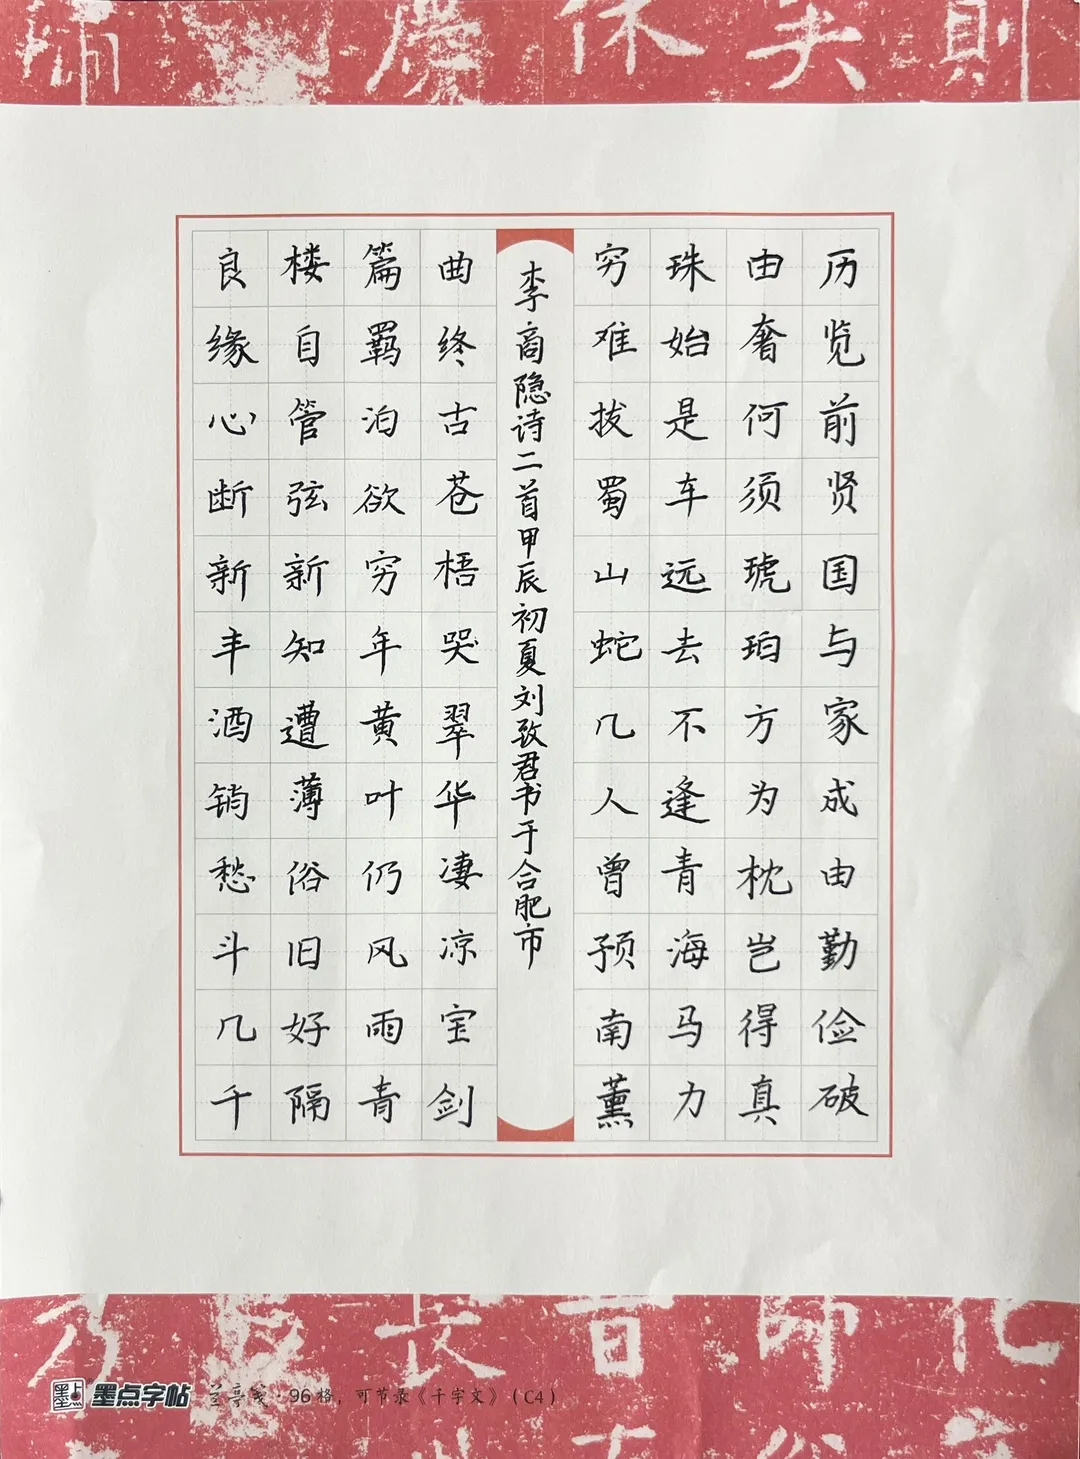 休失则
历览前贤国与家成由勤俭破
由奢何须琥珀方为枕岂得真
珠始是车远去不逢青海马力
穷难拔蜀山蛇几人曾预南薰
李商隐诗二首甲辰初夏刘致君书于合肥市
曲终古苍梧哭翠华凄凉宝剑
篇羁泊欲穷年黄叶仍风雨青
楼自管弦新知遭薄俗旧好隔
良缘心断新丰酒销愁斗几千
墨点字帖 兰亭笺·96格,可节录《千字文》(C4)